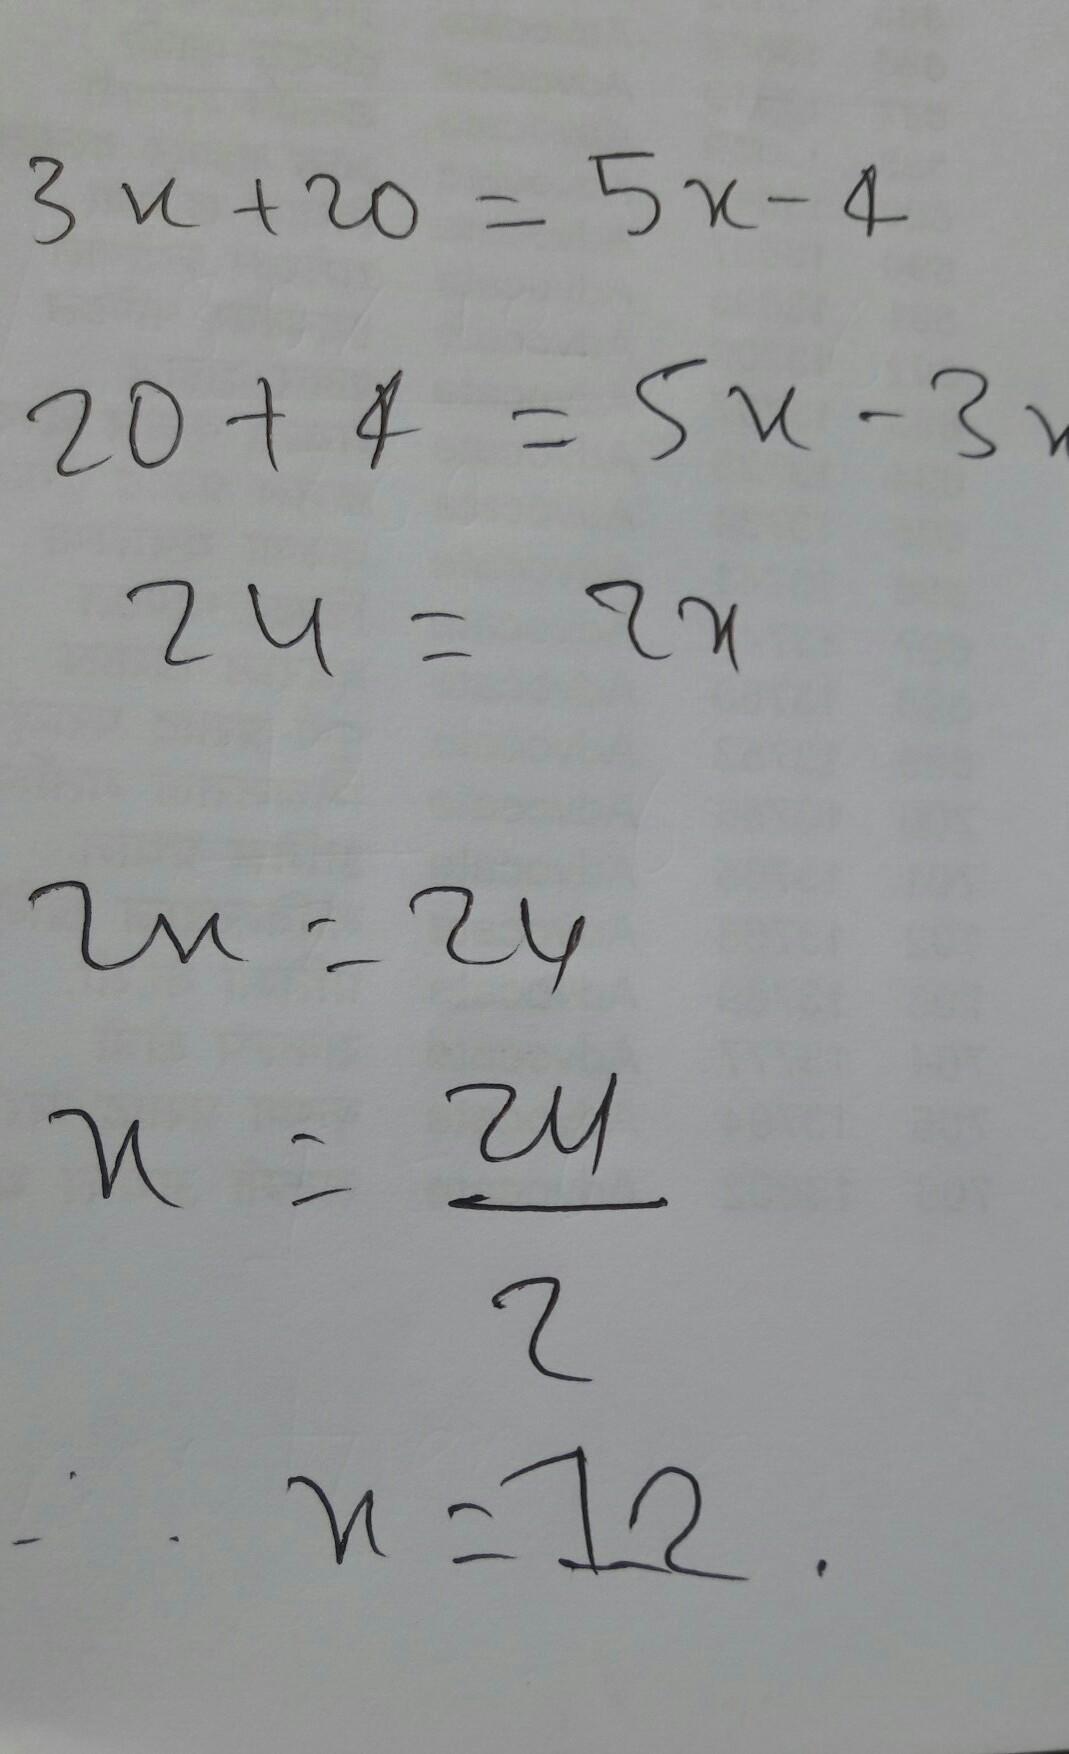 3x+20=5x-4
20+4=5x-3x
24=2x
2x=24
x=24/2
∴ x=12.